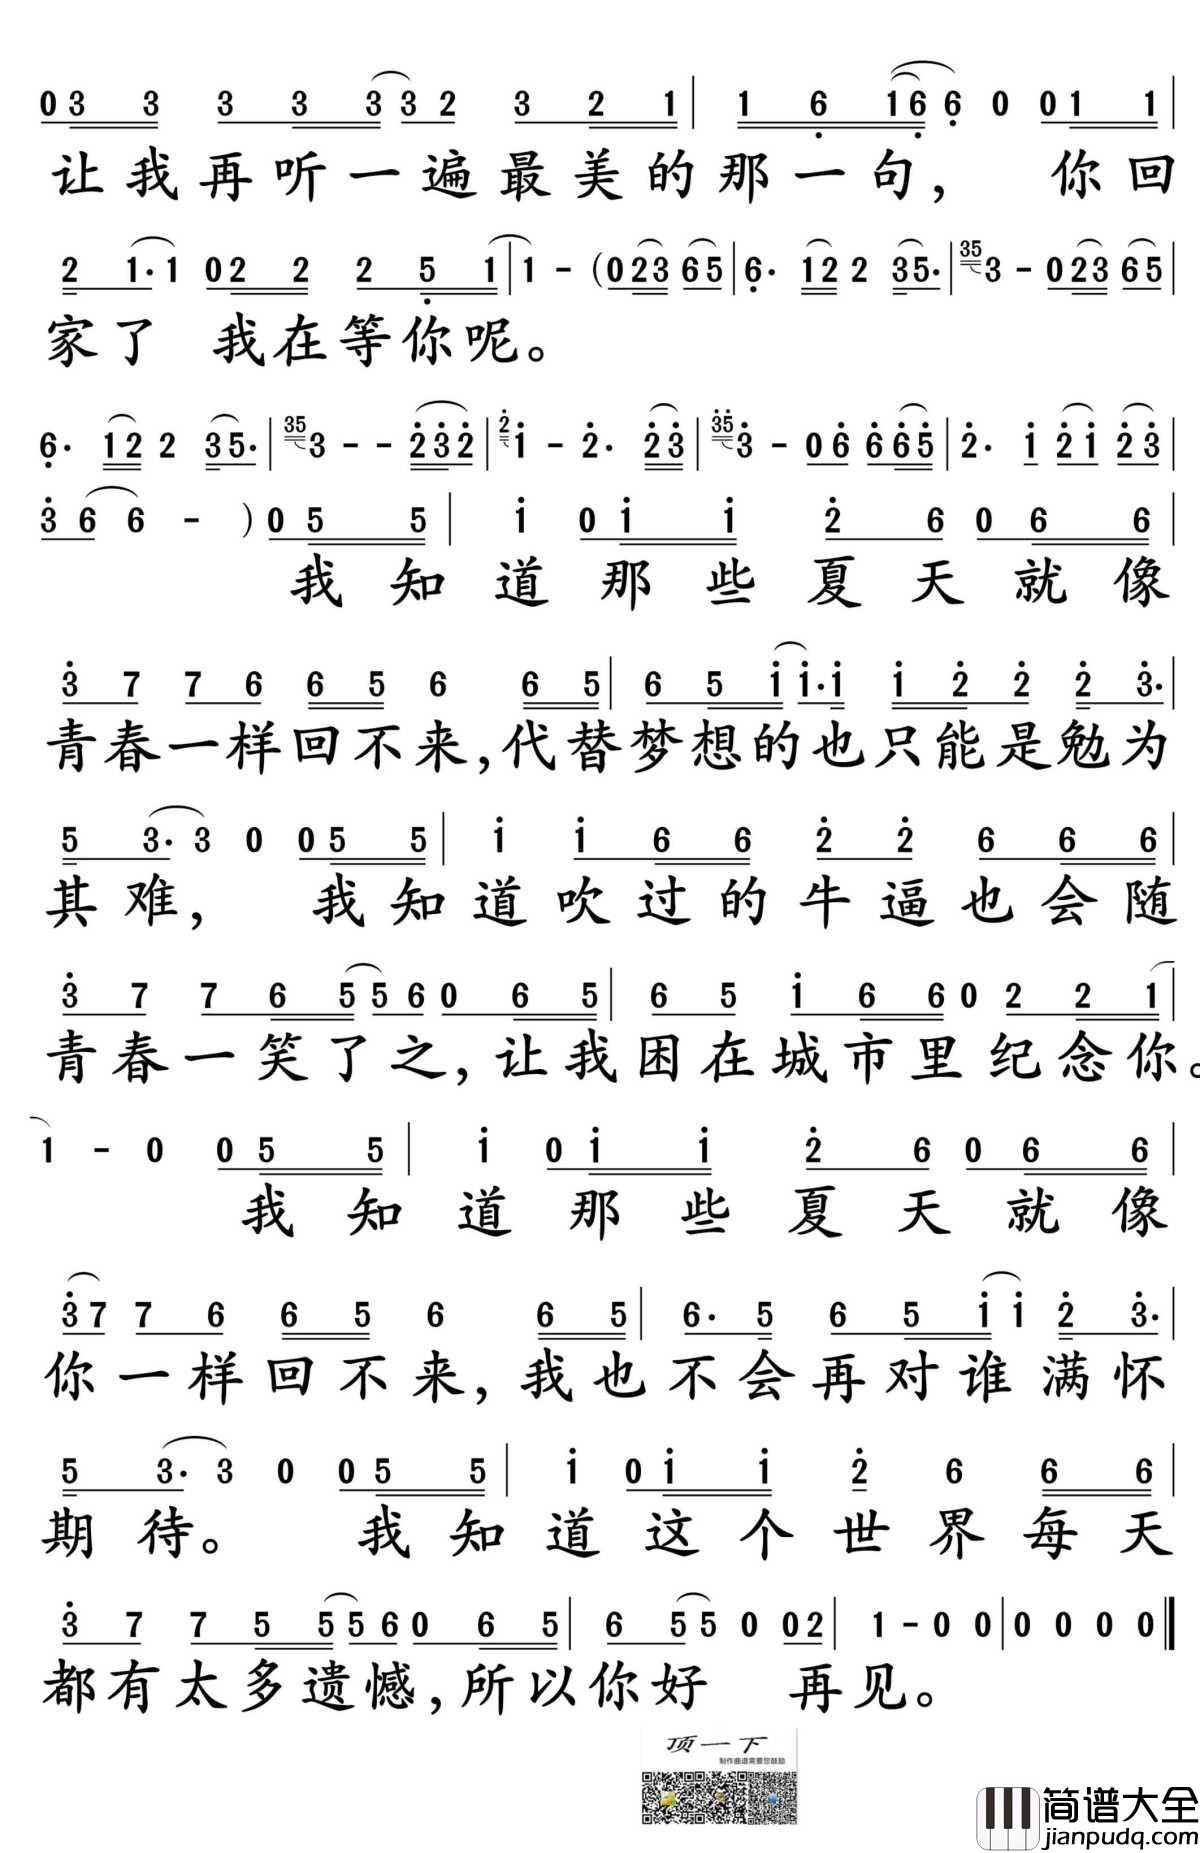 0 3 3 3 3 3 3 2 3 2 1 | 1 6 1 6 6 0 0 1 1 |
让我再听一遍最美的那一句， 你回
2 1· 1 0 2 2 2 5 1 | 1 - ( 0 2 3 6 5 | 6· 1 2 2 3 5· | 35 3 - 0 2 3 6 5 |
家了 我在等你呢。
6· 1 2 2 3 5· | 35 3 - - 2 3 2 | 2 1 - 2· 2 3 | 35 3 - 0 6 6 6 5 | 2· 1 2 1 2 3 |
3 6 6 - ) 0 5 5 | 1 0 1 1 2 6 0 6 6 |
我知道那些夏天就像
3 7 7 6 6 5 6 6 5 | 6 5 1 1· 1 1 2 2 2 3· |
青春一样回不来，代替梦想的也只能是勉为
5 3· 3 0 0 5 5 | 1 1 6 6 2 2 6 6 6 |
其难， 我知道吹过的牛逼也会随
3 7 7 6 5 5 6 0 6 5 | 6 5 1 6 6 0 2 2 1 |
青春一笑了之，让我困在城市里纪念你。
1 - 0 0 5 5 | 1 0 1 1 2 6 0 6 6 |
我知道那些夏天就像
3 7 7 6 6 5 6 6 5 | 6· 5 6 5 1 1 2 3· |
你一样回不来，我也不会再对谁满怀
5 3· 3 0 0 5 5 | 1 0 1 1 2 6 6 6 |
期待。 我知道这个世界每天
3 7 7 5 5 5 6 0 6 5 | 6 5 5 0 0 2 | 1 - 0 0 | 0 0 0 0 ‖
都有太多遗憾，所以你好 再见。
顶一下
制作曲谱需要您鼓励
简谱大全
jianpudq.com